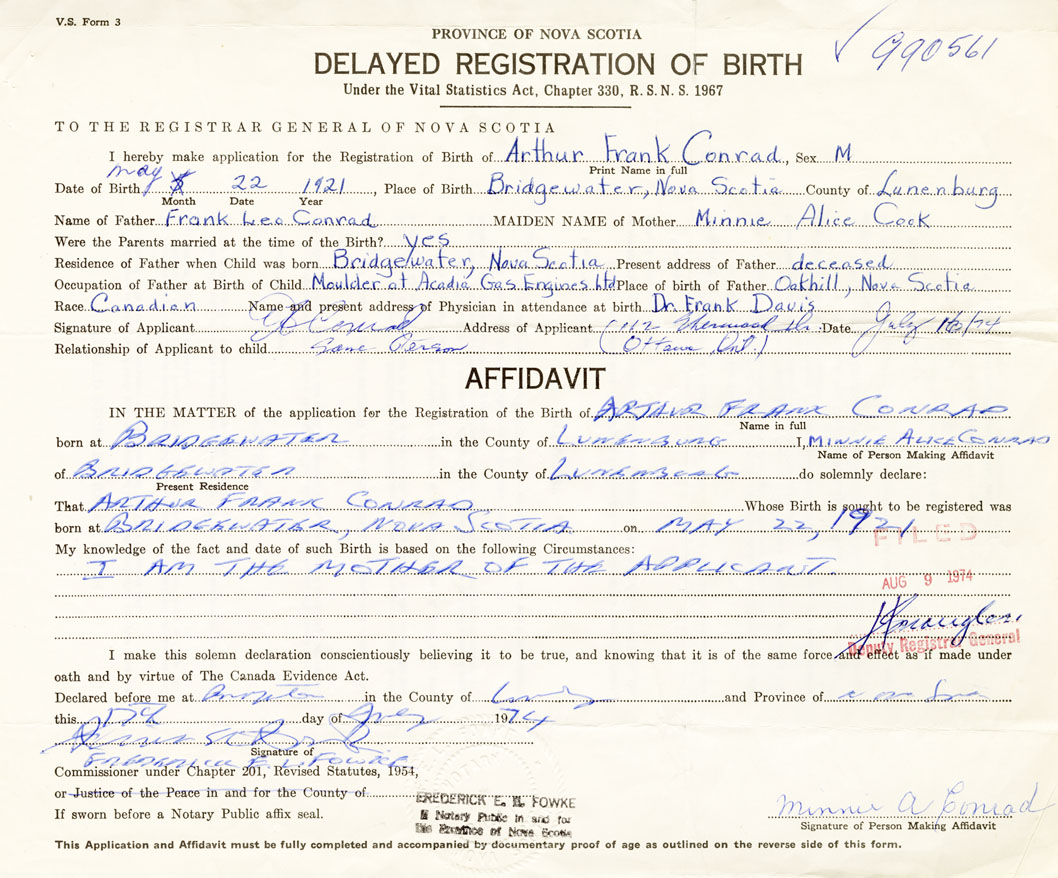 V.S. Form 3
✓ 990561
PROVINCE OF NOVA SCOTIA
DELAYED REGISTRATION OF BIRTH
Under the Vital Statistics Act, Chapter 330, R. S. N. S. 1967
TO THE REGISTRAR GENERAL OF NOVA SCOTIA
I hereby make application for the Registration of Birth of Arthur Frank Conrad, Sex M
Print Name in full
Date of Birth May 22 1921, Place of Birth Bridgewater, Nova Scotia County of Lunenburg
Month Date Year
Name of Father Frank Leo Conrad MAIDEN NAME of Mother Minnie Alice Cook
Were the Parents married at the time of the Birth? yes
Residence of Father when Child was born Bridgewater, Nova Scotia Present address of Father deceased
Occupation of Father at Birth of Child Moulder at Acadia Gas Engines Ltd Place of birth of Father Oakhill, Nova Scotia
Race Canadian Name and present address of Physician in attendance at birth Dr. Frank Davis
Signature of Applicant Conrad Address of Applicant (112 Sherwood Dr. Date July 16/74
Relationship of Applicant to child Same Person (Ottawa, Ont.)
AFFIDAVIT
IN THE MATTER of the application for the Registration of the Birth of ARTHUR FRANK CONRAD
Name in full
born at BRIDGEWATER in the County of LUNENBURG I, MINNIE ALICE CONRAD
Name of Person Making Affidavit
of BRIDGEWATER in the County of LUNENBURG do solemnly declare:
Present Residence
That ARTHUR FRANK CONRAD Whose Birth is sought to be registered was
born at BRIDGEWATER, NOVA SCOTIA on MAY 22, 1921
FILED
My knowledge of the fact and date of such Birth is based on the following Circumstances:
I AM THE MOTHER OF THE APPLICANT.
AUG 9 1974
Deputy Registrar General
I make this solemn declaration conscientiously believing it to be true, and knowing that it is of the same force and effect as if made under
oath and by virtue of The Canada Evidence Act.
Declared before me at in the County of and Province of Nova Scotia
this day of July 1974
Signature of
FREDERICK E. L. FOWKE
Commissioner under Chapter 201, Revised Statutes, 1954,
or Justice of the Peace in and for the County of
If sworn before a Notary Public affix seal.
FREDERICK E. L. FOWKE
A Notary Public in and for
the Province of Nova Scotia
Minnie A Conrad
Signature of Person Making Affidavit
This Application and Affidavit must be fully completed and accompanied by documentary proof of age as outlined on the reverse side of this form.